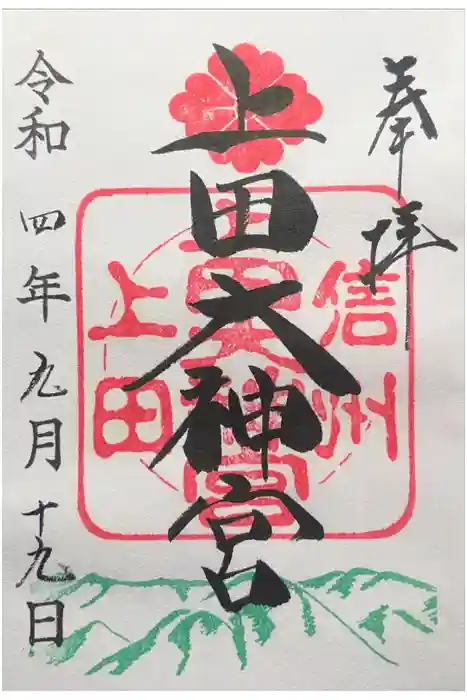 奉拝
信州
上田大神宮
上田
上田大神宮
令和四年九月十九日